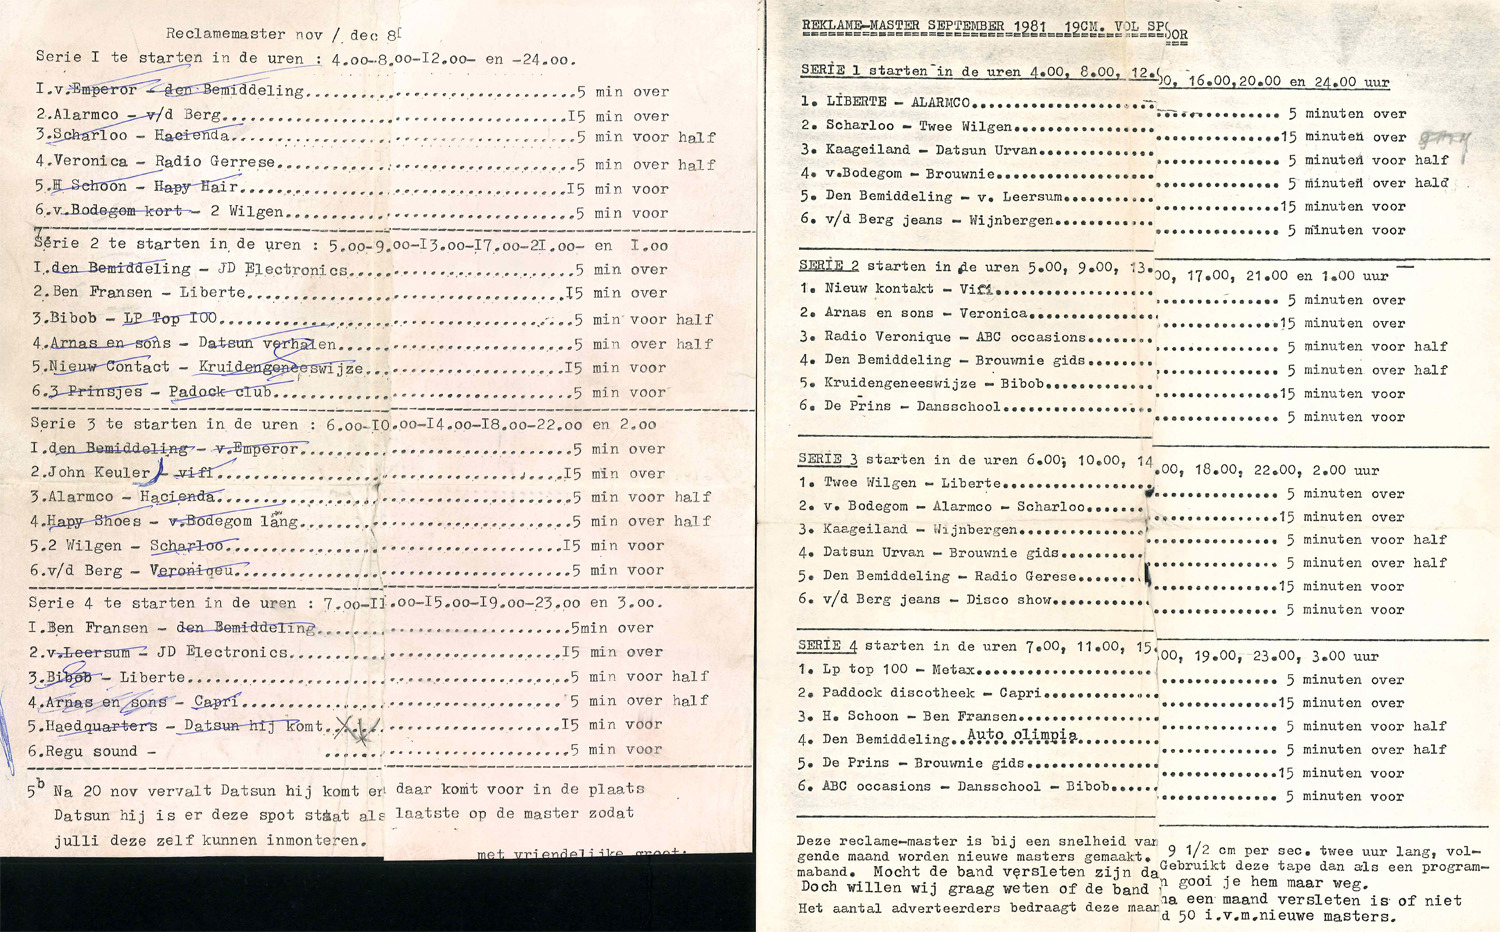 Reclamemaster nov / dec 8
Serie I te starten in de uren : 4.oo-8.oo-I2.oo- en -24.oo.
I.v.Emperor - den Bemiddeling..........5 min over
2.Alarmco - v/d Berg..........I5 min over
3.Scharloo - Hacienda..........5 min voor half
4.Veronica - Radio Gerrese..........5 min over half
5.H Schoon - Hapy Hair..........I5 min voor
6.v.Bodegom kort - 2 Wilgen..........5 min voor
Serie 2 te starten in de uren : 5.oo-9.oo-I3.oo-I7.oo-2I.oo- en I.oo
I.den Bemiddeling - JD Electronics..........5 min over
2.Ben Fransen - Liberte..........I5 min over
3.Bibob - LP Top I00..........5 min voor half
4.Arnas en sons - Datsun verhalen..........5 min over half
5.Nieuw Contact - Kruidengeneeswijze..........I5 min voor
6.3 Prinsjes - Padock club..........5 min voor
Serie 3 te starten in de uren : 6.oo-I0.oo-I4.oo-I8.oo-22.oo en 2.oo
I.den Bemiddeling - v.Emperor..........5 min over
2.John Keuler - vifi..........I5 min over
3.Alarmco - Hacienda..........5 min voor half
4.Hapy Shoes - v.Bodegom lang..........5 min over half
5.2 Wilgen - Scharloo..........I5 min voor
6.v/d Berg - Veroniqeu..........5 min voor
Serie 4 te starten in de uren : 7.oo-II.oo-I5.oo-I9.oo-23.oo en 3.oo.
I.Ben Fransen - den Bemiddeling..........5min over
2.v.Leersum - JD Electronics..........I5 min over
3.Bibob - Liberte..........5 min voor half
4.Arnas en sons - Capri..........5 min over half
5.Haedquarters - Datsun hij komt..........I5 min voor
6.Regu sound - ..........5 min voor
5b Na 20 nov vervalt Datsun hij komt en daar komt voor in de plaats
Datsun hij is er deze spot staat als laatste op de master zodat
julli deze zelf kunnen inmonteren.
met vriendelijke groet:
REKLAME-MASTER SEPTEMBER 1981 19CM. VOL SPOOR
SERIE 1 starten in de uren 4.00, 8.00, 12.00, 16.00,20.00 en 24.00 uur
1. LIBERTE - ALARMCO.......... 5 minuten over
2. Scharloo - Twee Wilgen..........15 minuten over
3. Kaageiland - Datsun Urvan.......... 5 minuten voor half
4. v.Bodegom - Brouwnie.......... 5 minuten over half
5. Den Bemiddeling - v. Leersum..........15 minuten voor
6. v/d Berg jeans - Wijnbergen.......... 5 minuten voor
SERIE 2 starten in de uren 5.00, 9.00, 13.00, 17.00, 21.00 en 1.00 uur
1. Nieuw kontakt - Vifi.......... 5 minuten over
2. Arnas en sons - Veronica..........15 minuten over
3. Radio Veronique - ABC occasions.......... 5 minuten voor half
4. Den Bemiddeling - Brouwnie gids.......... 5 minuten over half
5. Kruidengeneeswijze - Bibob..........15 minuten voor
6. De Prins - Dansschool.......... 5 minuten voor
SERIE 3 starten in de uren 6.00, 10.00, 14.00, 18.00, 22.00, 2.00 uur
1. Twee Wilgen - Liberte.......... 5 minuten over
2. v. Bodegom - Alarmco - Scharloo..........15 minuten over
3. Kaageiland - Wijnbergen.......... 5 minuten voor half
4. Datsun Urvan - Brouwnie gids.......... 5 minuten over half
5. Den Bemiddeling - Radio Gerese..........15 minuten voor
6. v/d Berg jeans - Disco show.......... 5 minuten voor
SERIE 4 starten in de uren 7.00, 11.00, 15.00, 19.00, 23.00, 3.00 uur
1. Lp top 100 - Metax.......... 5 minuten over
2. Paddock discotheek - Capri..........15 minuten over
3. H. Schoon - Ben Fransen.......... 5 minuten voor half
4. Den Bemiddeling..Auto olimpia.......... 5 minuten over half
5. De Prins - Brouwnie gids..........15 minuten voor
6. ABC occasions - Dansschool - Bibob.......... 5 minuten voor
Deze reclame-master is bij een snelheid van 9 1/2 cm per sec. twee uur lang, vol-
gende maand worden nieuwe masters gemaakt. Gebruikt deze tape dan als een program-
maband. Mocht de band versleten zijn dan gooi je hem maar weg.
Doch willen wij graag weten of de band na een maand versleten is of niet
Het aantal adverteerders bedraagt deze maand 50 i.v.m.nieuwe masters.